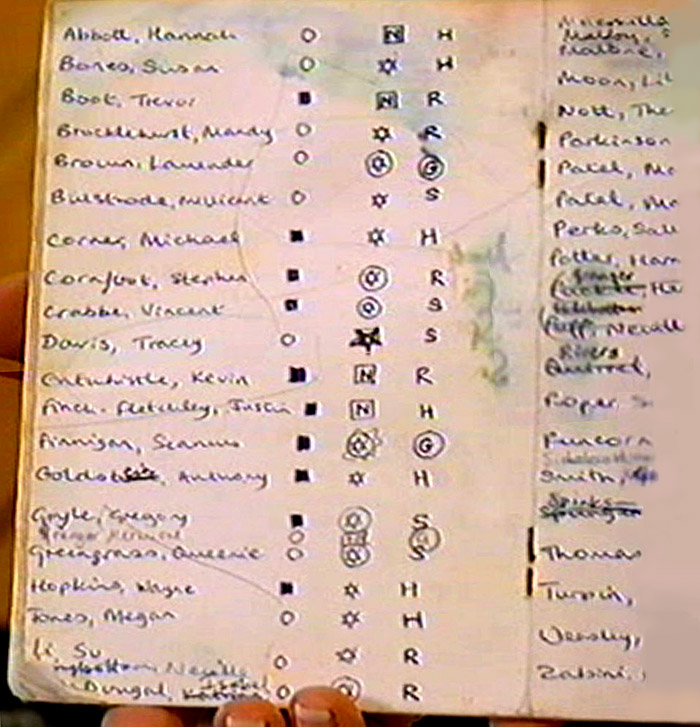 Abbott, Hannah N H
Bones, Susan H
Boot, Trevor N R
Brocklehurst, Mandy R
Brown, Lavender G
Bulstrode, Millicent S
Corner, Michael H
Cornfoot, Stephen R
Crabbe, Vincent S
Davis, Tracey S
Entwhistle, Kevin N R
Finch-Fletchley, Justin N H
Finnigan, Seamus G
Goldst, Anthony H
Goyle, Gregory S
Granger Hermione
Greengrass, Queenie S
Hopkins, Wayne H
Jones, Megan H
Li, Su R
Neville
Dougal, R
Malfoy,
Malone,
Moon, Li
Nott, The
Parkinson
Patil,
Patel,
Perks, Sall
Potter, Harr
Granger
Puff, Nevill
Rivers
Quirrel,
Roper, S
Runcorn
Smith,
Spinks
Spungen
Thomas
Turpin,
Weasley,
Zabini,